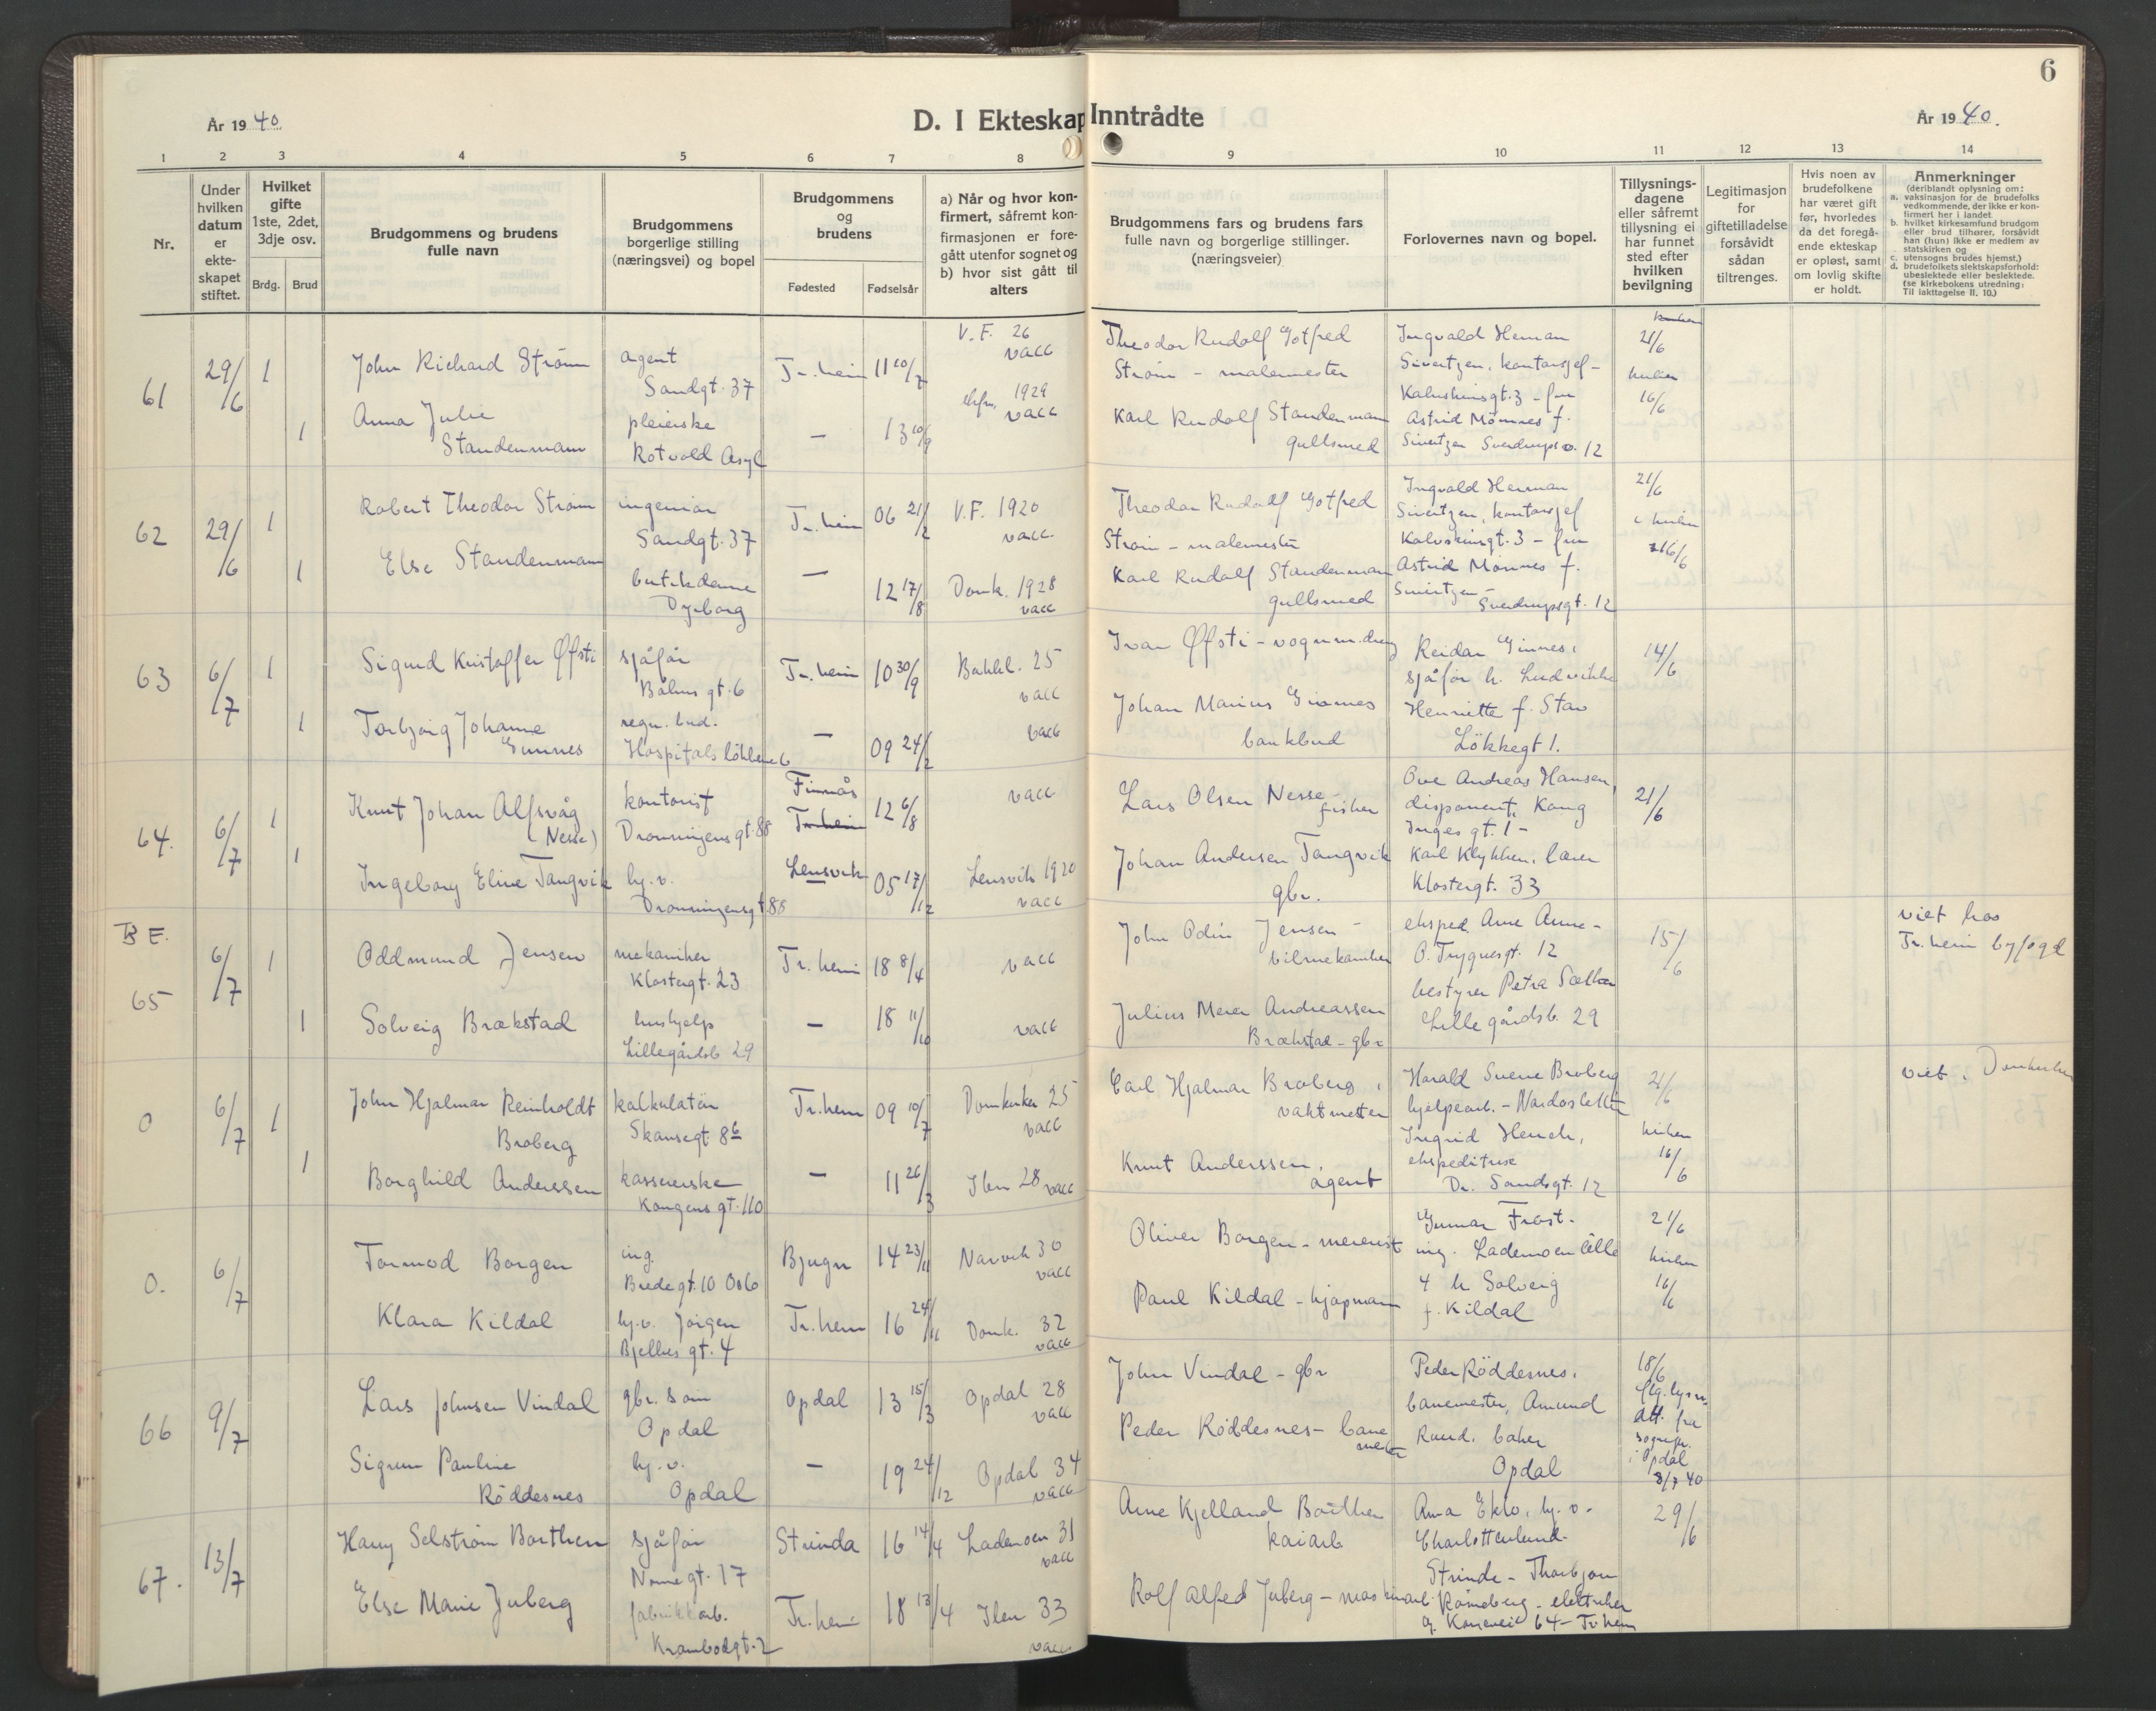 6
År 1940.
D. I Ekteskap Inntrådte
År 1940.
1 2 3 4 5 6 7 8 9 10 11 12 13 14
Nr.
Under hvilken datum er ekte-skapet stiftet.
Hvilket gifte 1ste, 2det, 3dje osv.
Brdg. Brud
Brudgommens og brudens fulle navn
Brudgommens borgerlige stilling (næringsvei) og bopel
Brudgommens og brudens
Fødested Fødselsår
a) Når og hvor kon-firmert, såfremt kon-firmasjonen er fore-gått utenfor sognet og b) hvor sist gått til alters
Brudgommens fars og brudens fars fulle navn og borgerlige stillinger. (næringsveier)
Forlovernes navn og bopel.
Tillysnings-dagene eller såfremt tillysning ei har funnet sted efter hvilken bevilgning
Legitimasjon for giftetilladelse forsåvidt sådan tiltrenges.
Hvis noen av brudefolkene har været gift før, hvorledes da det foregå-ende ekteskap er opløst, samt om lovlig skifte er holdt.
Anmerkninger
(deriblandt oplysning om:
a. vaksinasjon for de brudefolks vedkommende, der ikke er kon-firmert her i landet
b. hvilket kirkesamfund brudgom eller brud tilhører, forsåvidt han (hun) ikke er medlem av statskirken og
c. utensogns brudes hjemst.)
d. brudefolkets slektskapsforhold: ubeslektede eller beslektede. (se kirkebokens utredning: Til iakttagelse II. 10.)
61 29/6 1 John Richard Strøm agent Sandgt. 37 Tr.heim 11 20/7 V.F. 26 vacc
Theodor Rudolf Gotfred Strøm - malermester
Ingvald Herman Sivertzen, kontorsjef - Kalvskinnsgt. 3 - fru Astrid Mønnes f. Sivertzen Sverdrupsv. 12
21/6 kirken 16/6
1 Anna Julie Standenmann pleierske Rotvold Asyl - 13 10/9 1929 vacc
Karl Rudolf Standenmann gullsmed
62 29/6 1 Robert Theodor Strøm ingeniør Sandgt. 37 Tr.heim 06 21/2 V.F. 1920 vacc.
Theodor Rudolf Gotfred Strøm - malermester
Ingvald Herman Sivertzen, kontorsjef Kalvskinnsgt. 3 - fru Astrid Mønnes f. Sivertzen - Sverdrupsgt. 12
21/6 i kirken 16/6
1 Else Standenmann butikdame Dyrborg - 12 17/8 Domk. 1928 vacc
Karl Rudolf Standenmann gullsmed
63 6/7 1 Sigurd Kristoffer Øfsti sjåfør Båhus gt. 6 Tr.heim 10 30/9 Bakkl. 25 vacc
Ivar Øfsti - vognm.dreng
Reidar Ginnes, sjåfør h. Ludvikke Henriette f. Stav Løkkegt 1.
14/6
1 Torbjørg Johanne Ginnes regn. bud. Hospitalsløkkene 6 - 09 24/2 vacc
Johan Marius Ginnes bankbud
64. 6/7 1 Knut Johan Alfsvåg (Nesse) kontorist Dronningens gt. 88 Finnås Tr.heim 12 6/8 vacc
Lars Olsen Nesse - fisker
Ove Andreas Hansen, disponent, Kong Inges gt. 1 - Karl Klykken, lærer Klostergt. 33
21/6
1 Ingeborg Eline Tangvik hj.v. Dronningensgt 88 Lensvik 05 17/12 Lensvik 1920 vacc
Johan Andersen Tangvik gbr.
B F. 65 6/7 1 Oddmund Jensen mekaniker Klostergt. 23 Tr.heim 18 8/4 vacc
John Odin Jensen - bilmekaniker
eksped. Arne Aune - O. Trygvesgt. 12 bestyrer Petra Sæther Lillegårdsb. 29
15/6
viet hos Tr.heim byfogd
1 Solveig Brækstad hushjelp Lillegårdsb 29 - 18 11/10 vacc
Julius Meier Andreassen Brækstad - gbr
0 6/7 1 John Hjalmar Reinholdt Broberg kalkulatør Skansegt. 8 b Tr.heim 09 10/7 Domkirken 25 vacc
Carl Hjalmar Broberg, vaktmester
Harald Sverre Broberg hjelpearb. - Nardosletta Ingrid Henck, ekspeditrise Dr. Sandsgt. 12
21/6 kirken 16/6
viet i Domkirken
1 Borghild Anderssen kassererske Kongens gt. 110 - 11 26/3 Ilen 28 vacc
Knut Anderssen, agent
0. 6/7 Tormod Borgen ing. Bredegt. 10 Oslo Bjugn 14 23/11 Narvik 30 vacc
Oliver Borgen - meierist
Gunnar Frost - ing. Lademoen allé 4 h. Solveig f. Kildal
21/6 kirken 16/6
Klara Kildal hj.v. Jørgen Bjelkes gt. 4 Tr.heim 16 24/11 Domk. 32 vacc
Paul Kildal - kjøpmann
66 9/7 Lars Johnsen Vindal gbr. søn Opdal Opdal 13 15/3 Opdal 28 vacc
John Vindal - gbr
Peder Røddesnes, banemester, Amund Rund, baker Opdal
18/6 flg. lysn. att. fra sognepr. i Opdal 8/7 40
Sigrun Pauline Røddesnes hj.v. Opdal - 19 24/12 Opdal 34 vacc
Peder Røddesnes - banemester
67. 13/7 Harry Selstrøm Borthen sjåfør Nonnegt. 17 Strinda 16 14/4 Lademoen 31 vacc
Arne Kjelland Borthen kaiarb
Anna Eklo, hj.v. - Charlottenlund Strinda - Thorbjørn elektriker 64 - Tr.heim
29/6
Else Marie Juberg fabrikkarb. Krambodgt. 2 Tr.heim 18 13/4 Ilen 33 vacc
Rolf Alfred Juberg - maskinarb.